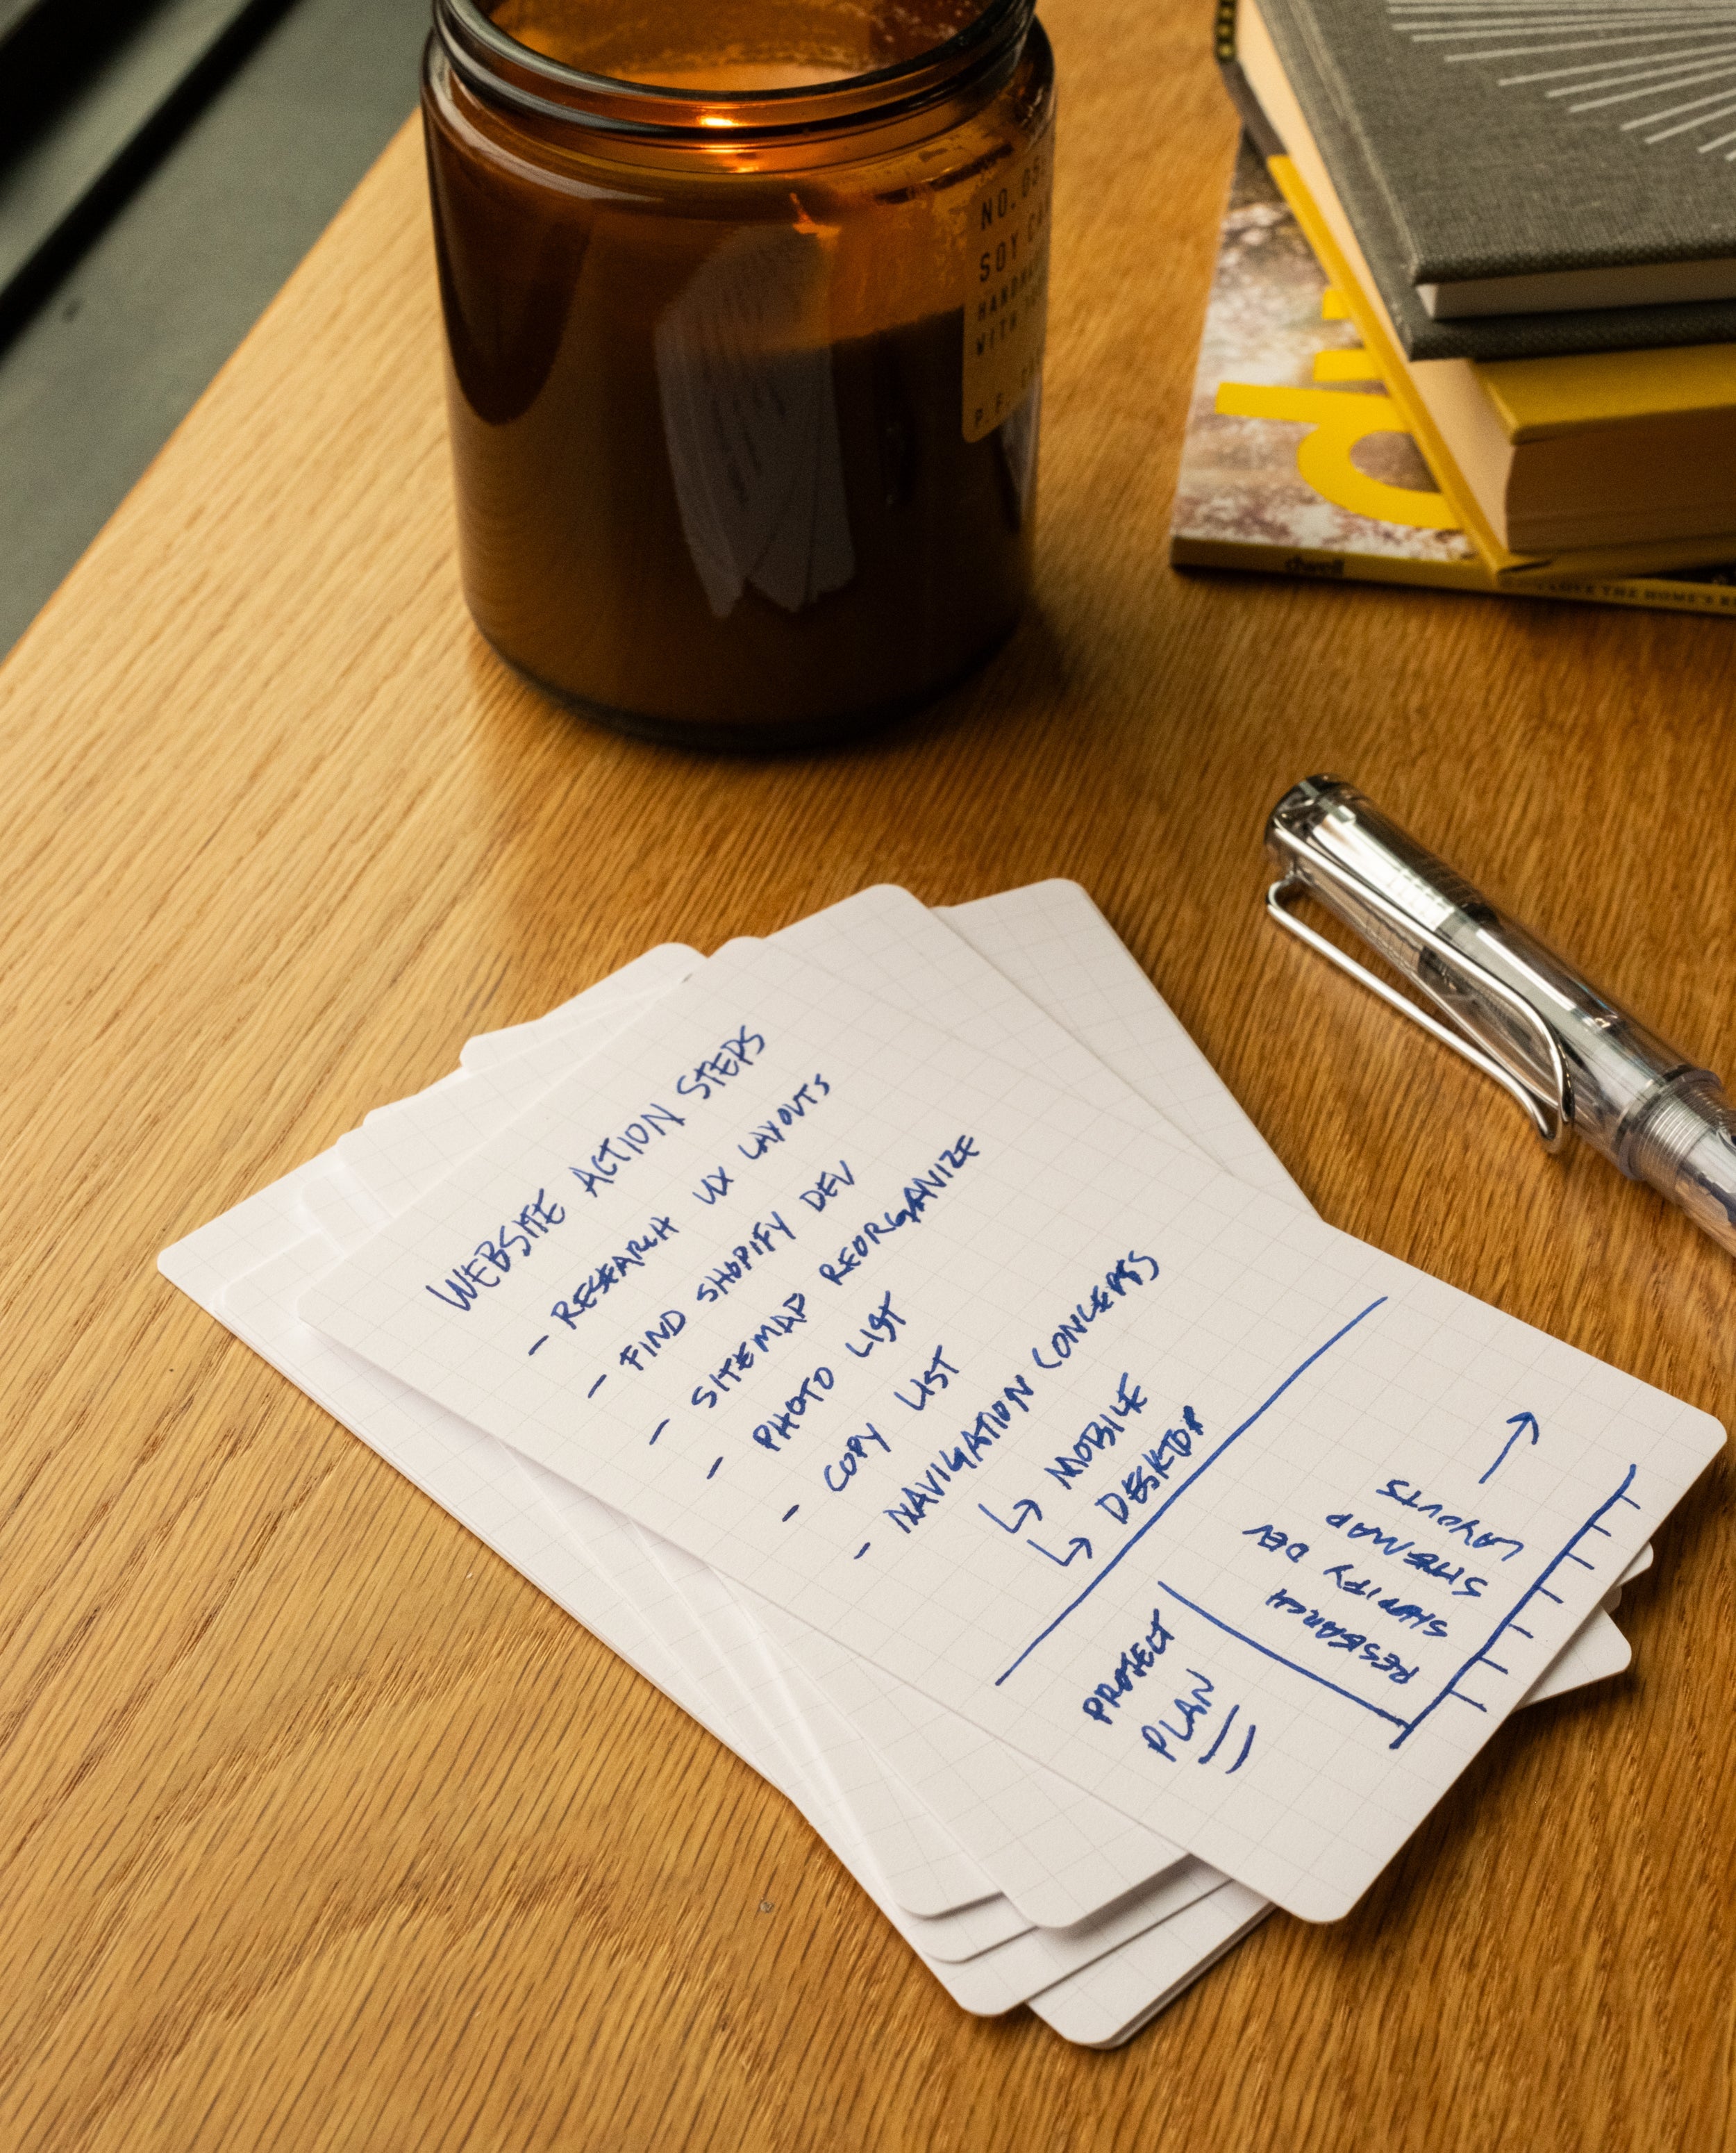 NO. 05
SOY CA
HANDMA
WITH
P. F.
dwell
WEBSITE ACTION STEPS
- RESEARCH UX LAYOUTS
- FIND SHOPIFY DEV
- SITEMAP REORGANIZE
- PHOTO LIST
- COPY LIST
- NAVIGATION CONCEPTS
↳ MOBILE
↳ DESKTOP
PROJECT
PLAN
RESEARCH
SHOPIFY DEV
SITEMAP
LAYOUTS